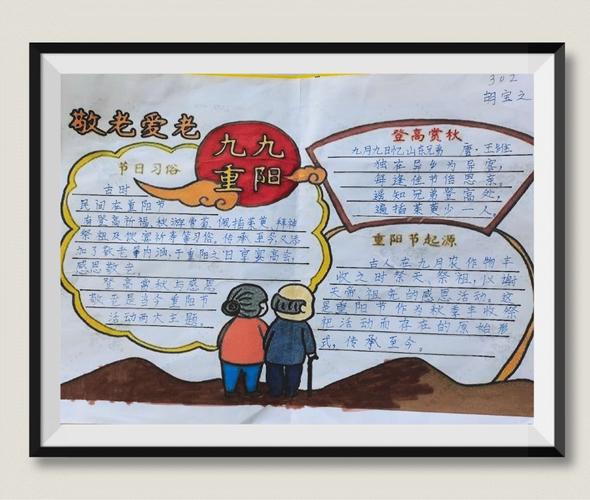 302
胡宝之
敬老爱老
九九
重阳
节日习俗
古时
民间在重阳节
有登高祈福、秋游赏菊、佩插茱萸、拜神
祭祖及饮宴祈寿等习俗。传承至今,又添
加了敬老等内涵,于重阳之日享宴高会,
感恩敬老。
登高赏秋与感恩
敬老是当今重阳节
活动两大主题。
登高赏秋
九月九日忆山东兄弟 唐·王维
独在异乡为异客,
每逢佳节倍思亲。
遥知兄弟登高处,
遍插茱萸少一人。
重阳节起源
古人在九月农作物丰
收之时祭天、祭祖,以谢
天帝、祖先的感恩活动。这
是重阳节作为秋季丰收祭
祀活动而存在的原始形
式,传承至今。